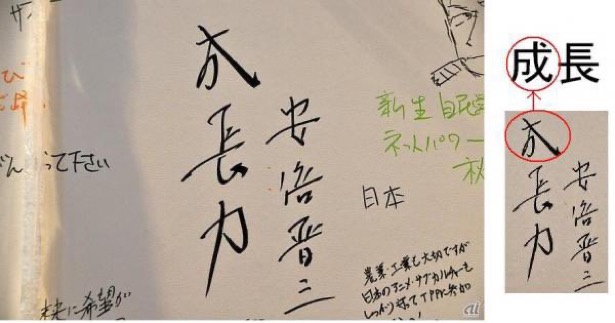 成長力
安倍晋三
新生自民党
ネットパワー
日本
って下さい
農業・工業も大切ですが
日本のアニメ・サブカルチャーも
しっかり守ってTPPに参加
未来に希望が
ai
成長
成長力
安倍晋三